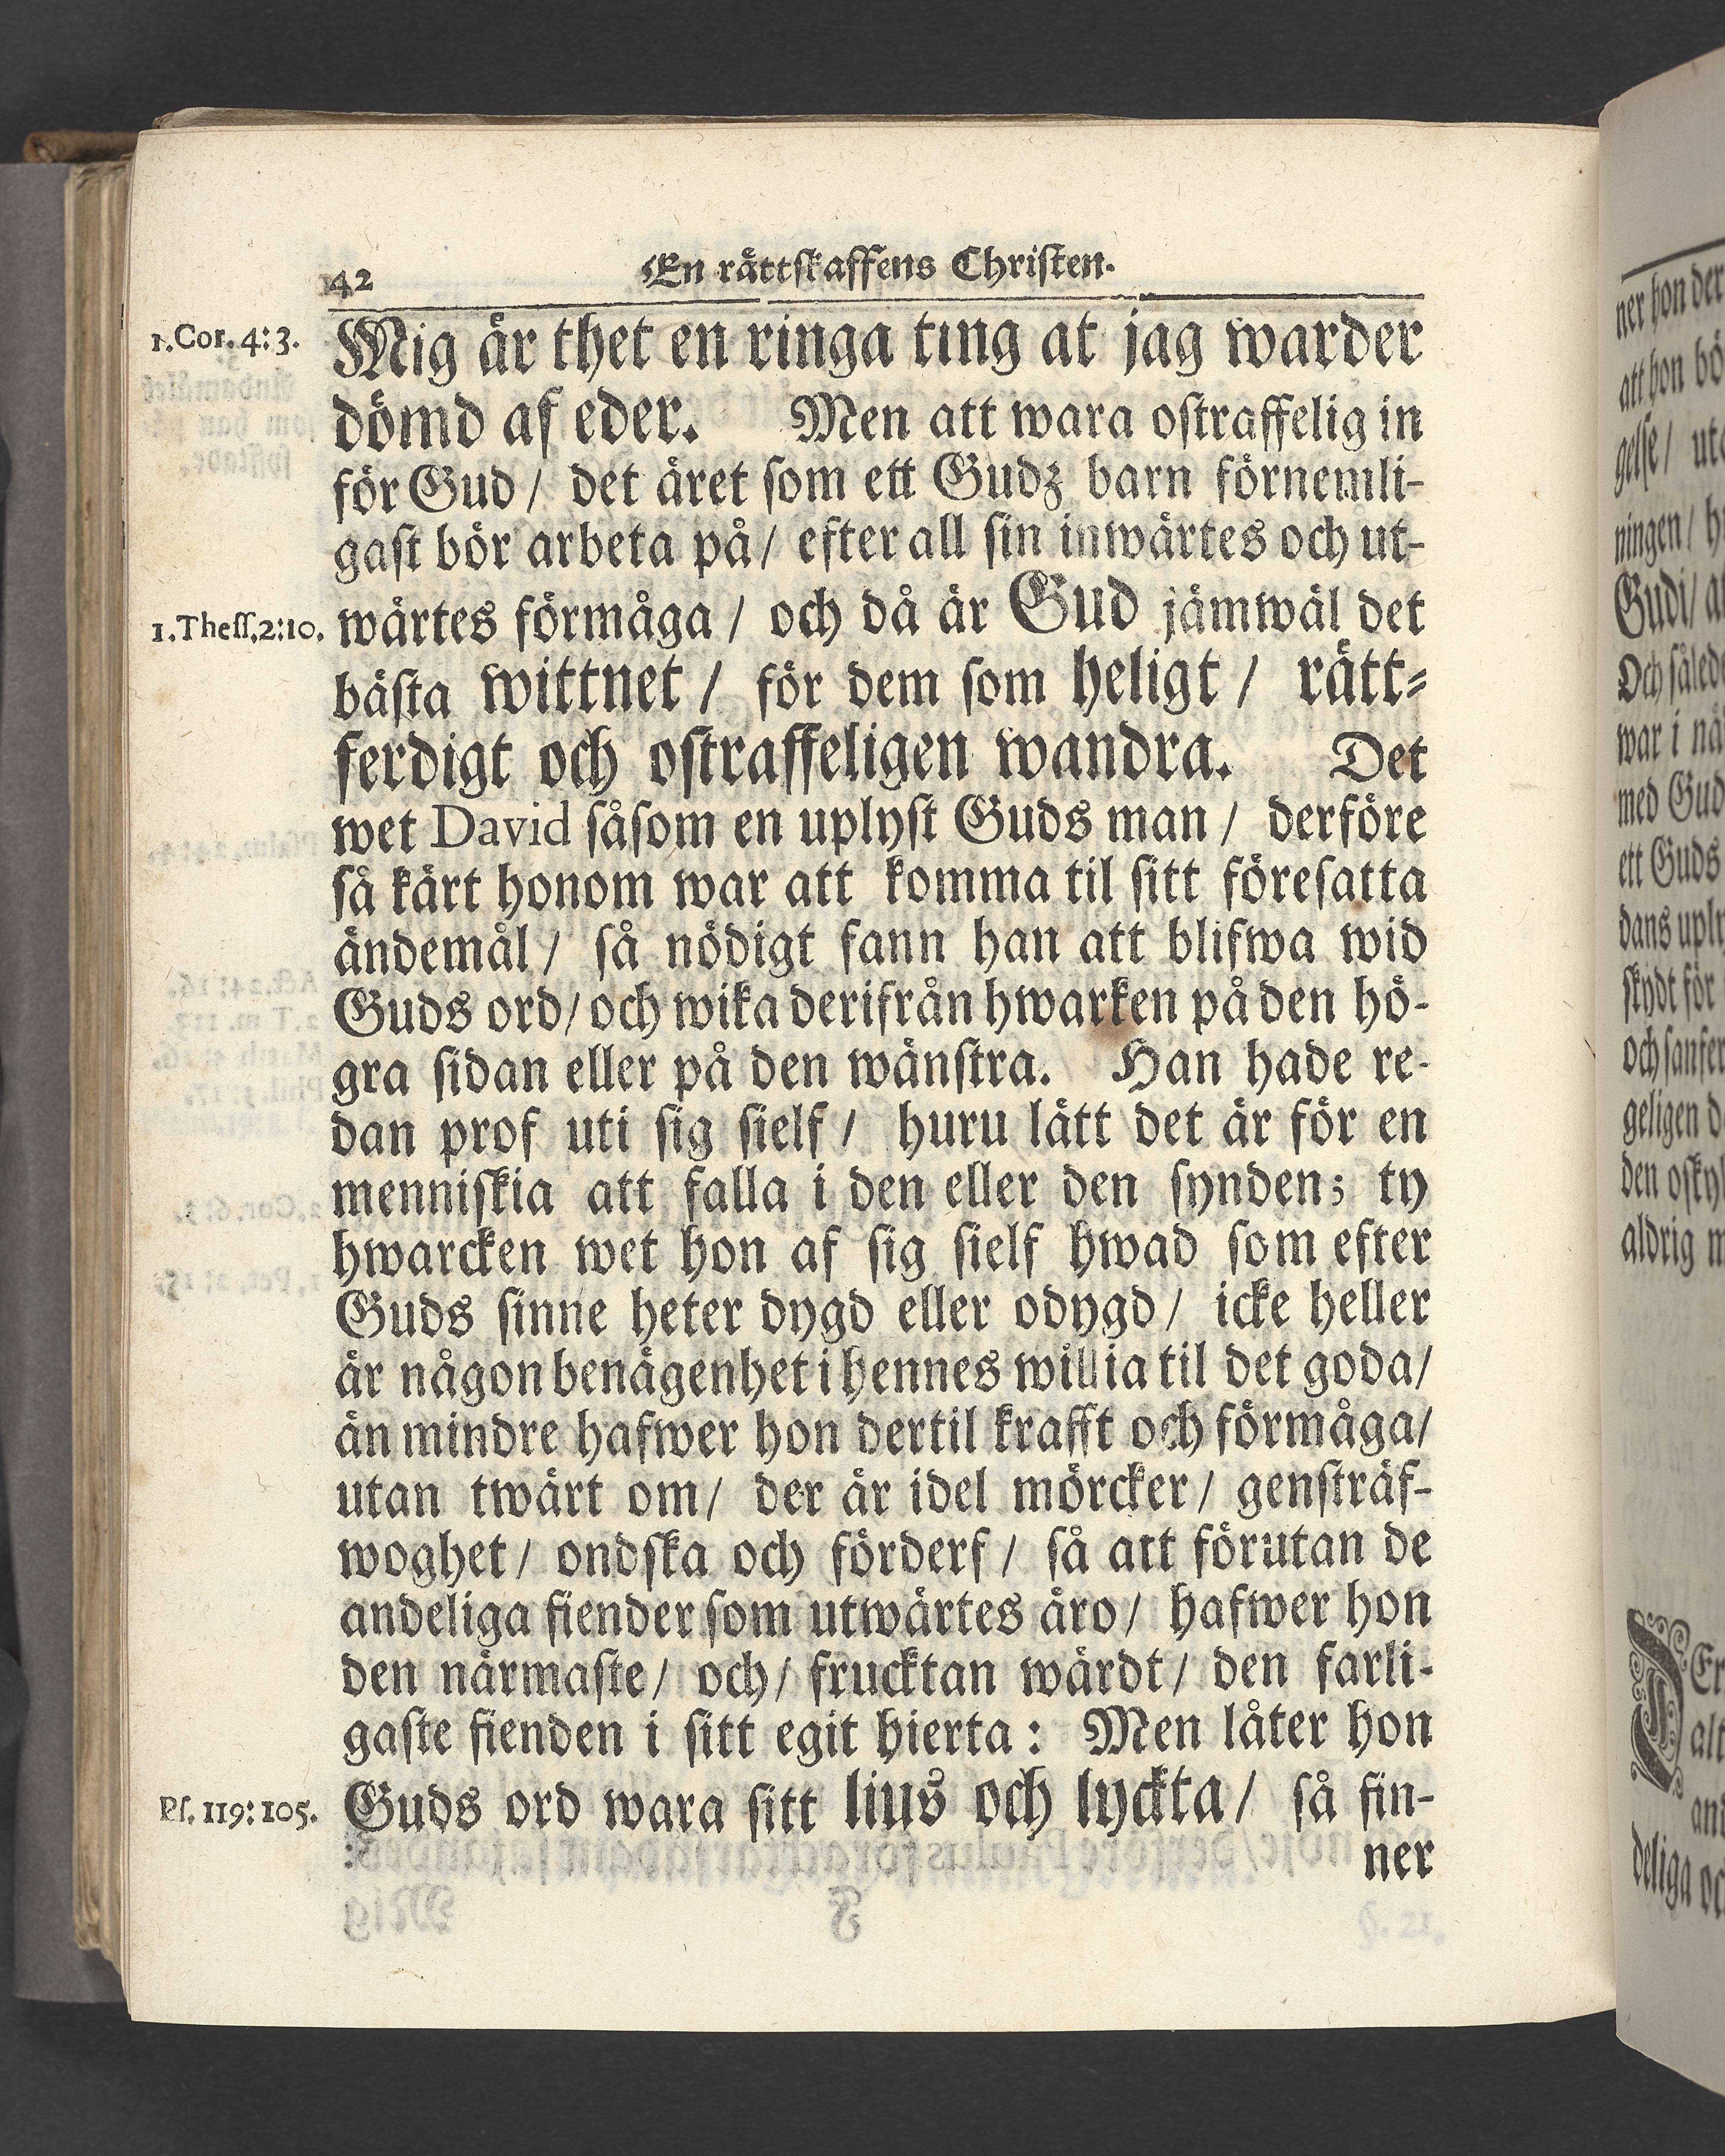 42 En rättskaffens Christen.
1. Cor. 4: 3. Mig är thet en ringa ting at jag warder
dömd af eder. Men att wara ostraffelig in
för Gud / det äret som ett Gudz barn förnemli-
gast bör arbeta på / efter all sin inwärtes och ut-
1. Thess. 2: 10. wärtes förmåga / och då är Gud jämwäl det
bästa wittnet / för dem som heligt / rätt-
ferdigt och ostraffeligen wandra. Det
wet David såsom en uplyst Guds man / derföre
så kärt honom war att komma til sitt föresatta
ändemål / så nödigt fann han att blifwa wid
Guds ord / och wika derifrån hwarken på den hö-
gra sidan eller på den wänstra. Han hade re-
dan prof uti sig sielf / huru lätt det är för en
menniskia att falla i den eller den synden; ty
hwarcken wet hon af sig sielf hwad som efter
Guds sinne heter dygd eller odygd / icke heller
är någon benägenhet i hennes willia til det goda /
än mindre hafwer hon dertil krafft och förmåga /
utan twärt om / der är idel mörcker / gensträf-
woghet / ondska och förderf / så att förutan de
andeliga fiender som utwärtes äro / hafwer hon
den närmaste / och / frucktan wärdt / den farli-
gaste fienden i sitt egit hierta : Men låter hon
Ps. 119: 105. Guds ord wara sitt lius och lyckta / så fin-
ner
ner hon der
att hon bö
gelse / ut
ningen / h
Gudi / a
Och således
war i nå
med Gud
ett Guds
dans uply
skydt för
och sanfer
geligen d
den oskyl
aldrig m
Er
alt
and
deliga oc